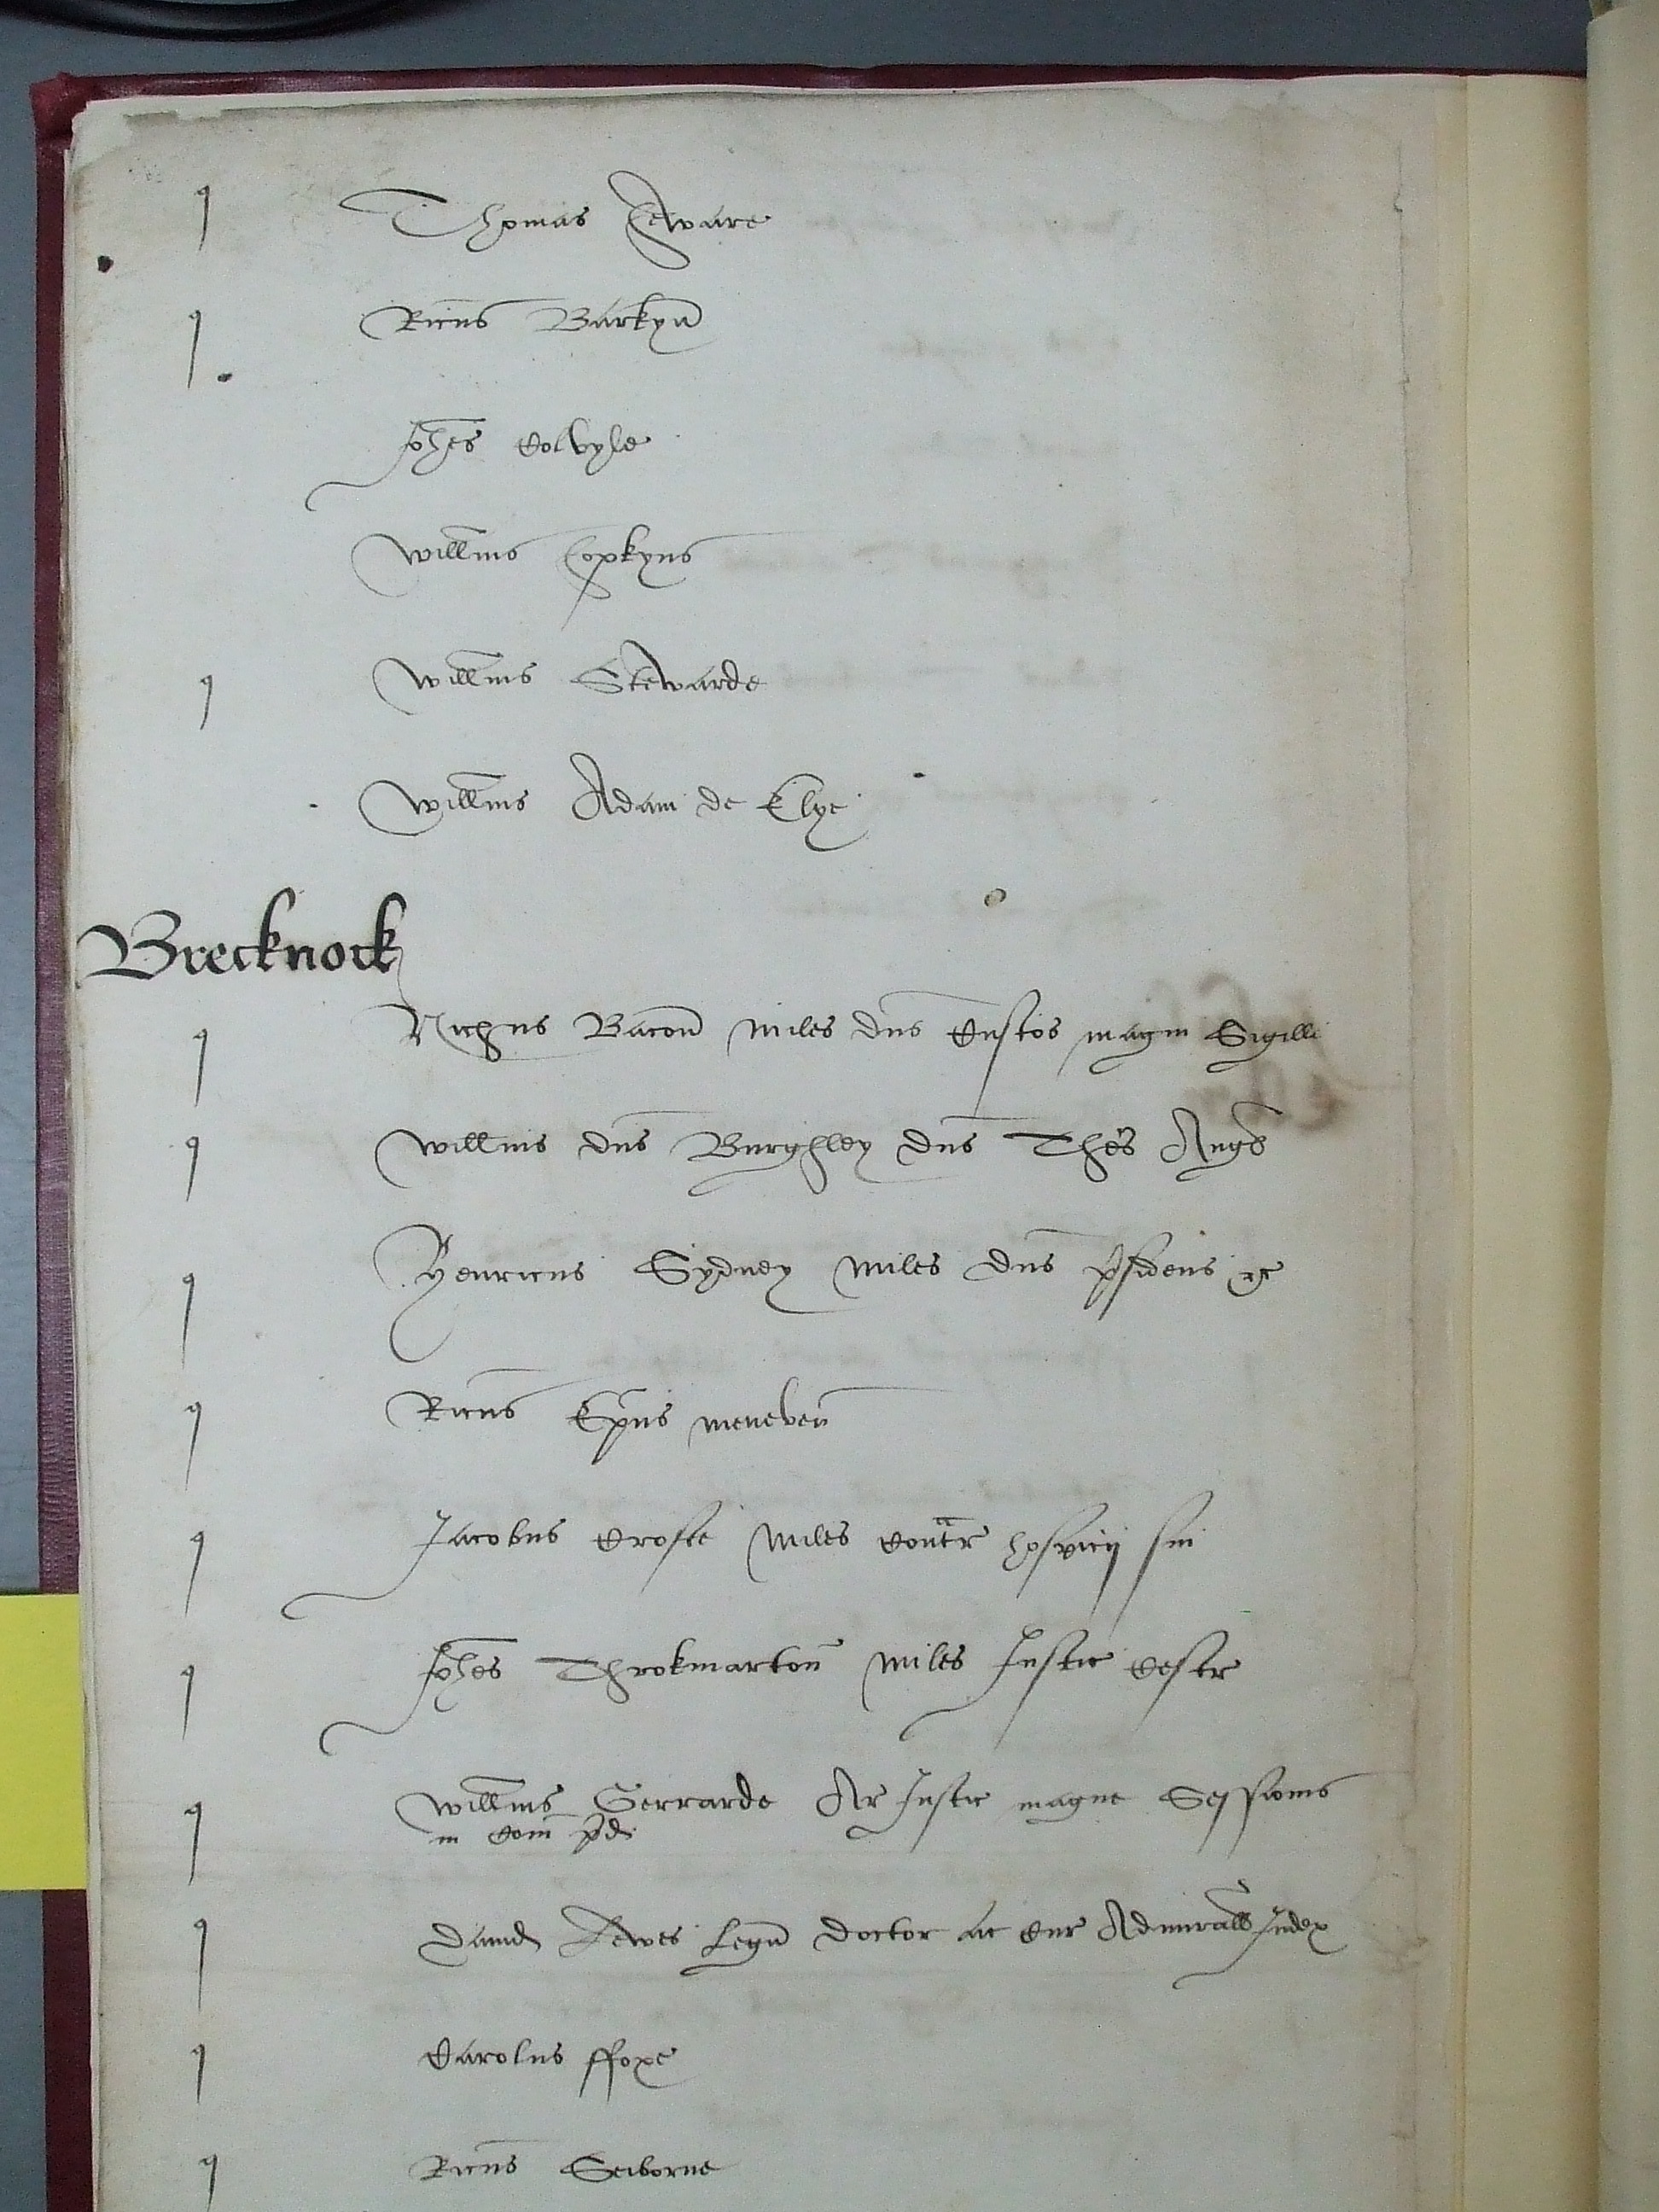 Thomas Heware
Ricus Barkyn
Johes Colvyle
Willms Hopkyns
Willms Stewarde
Willms Adam de Elye
Brecknock
Nichus Bacon miles dns Custos magni Sigilli
Willms dns Burghley dns Thes Angl
Henricus Sydney miles dns psidens &c
Ricus Epus meneven
Jacobus Crofte miles Contr hospicij sui
Johes Throkmarton miles Justic Cestr
Willms Gerrarde Ar Justic magne Sessionis
in Com pd
David Lewes Legu doctor ac Cur Admirall Judex
Carolus ffoxe
Ricus Seiborne